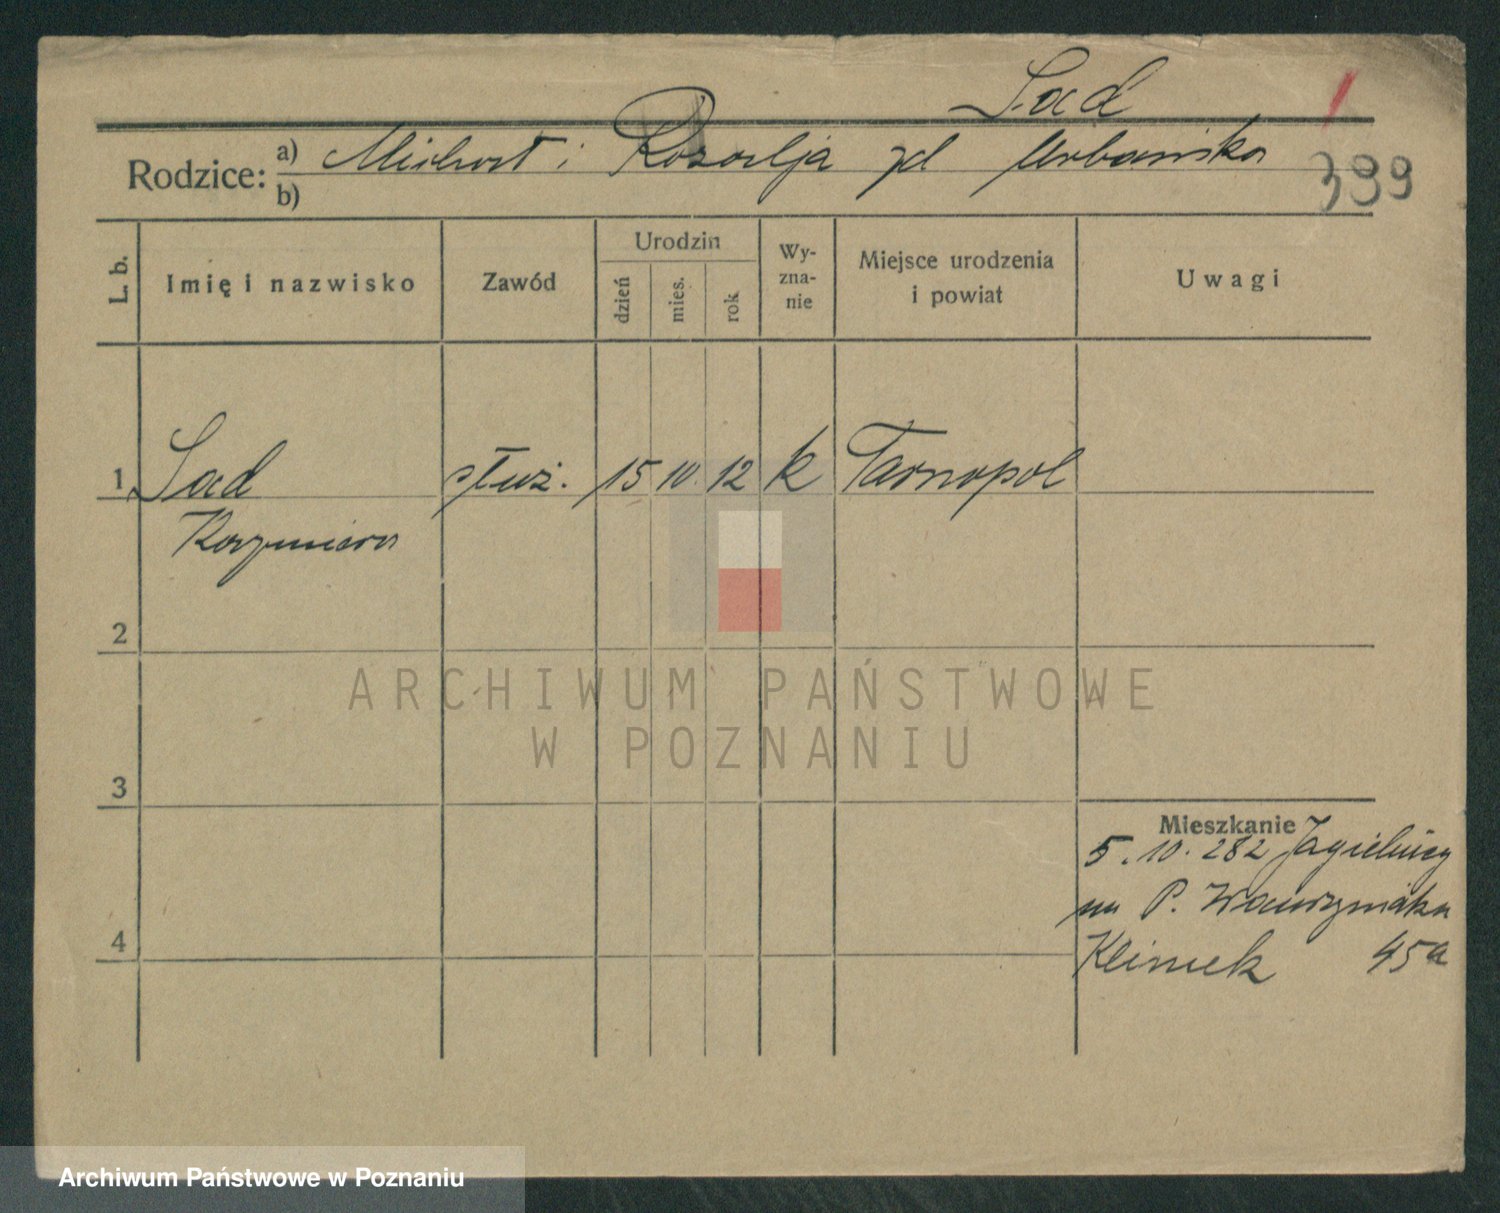 Sad
Rodzice: a) Michał i Rozalja zd Urbańska
b)
399
L. b.
Imię i nazwisko
Zawód
Urodzin
dzień
mies.
rok
Wy-
zna-
nie
Miejsce urodzenia
i powiat
Uwagi
1 Sad służ. 15 10. 12 k Tarnopol
Kazimiera
2
3
4
Mieszkanie
5. 10. 282
P. Wawrzyniaka
Klimek 45a
ARCHIWUM PAŃSTWOWE
W POZNANIU
Archiwum Państwowe w Poznaniu